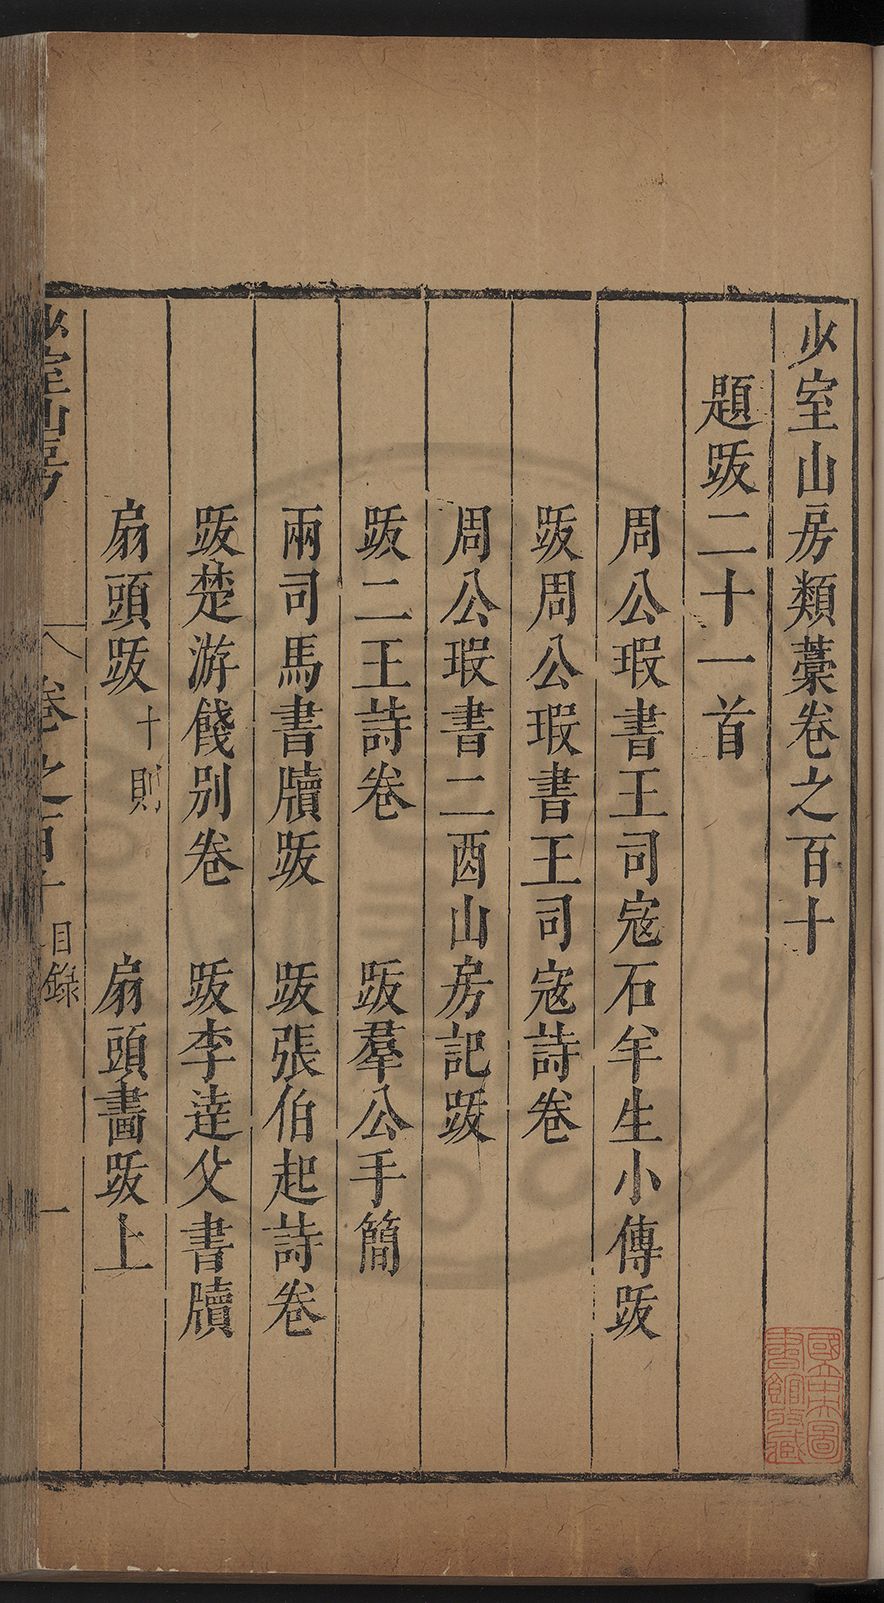 少室山房類藁卷之百十
題跋二十一首
周公瑕書王司寇石羊生小傳跋
跋周公瑕書王司寇詩卷
周公瑕書二酉山房記跋
跋二王詩卷　跋羣公手簡
兩司馬書牘跋　跋張伯起詩卷
跋楚游餞別卷　跋李達父書牘
扇頭跋十則　扇頭畵跋上
少室山房　卷之百十　目錄　一
國立中央圖書館收藏